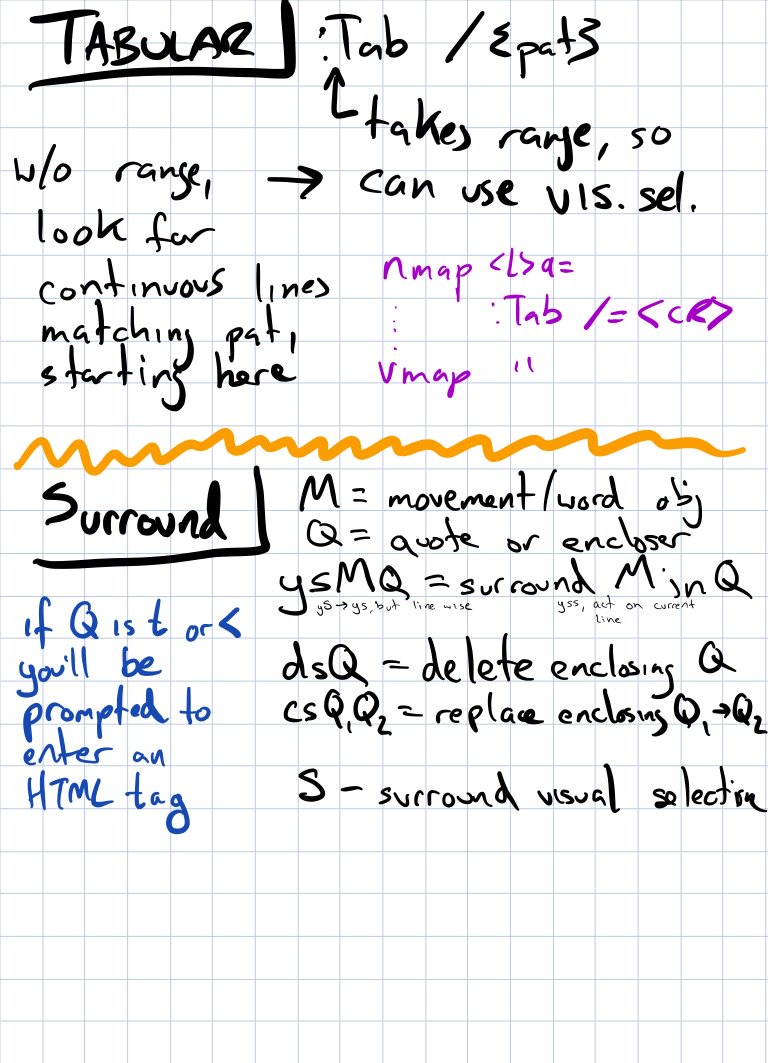 TABULAR
:Tab /{pat}
takes range, so
can use vis. sel.
w/o range, →
look for
continuous lines
matching pat,
starting here
nmap <L>a=
:Tab /=<CR>
⋮
vmap "
Surround
M = movement/word obj
Q = quote or encloser
ysMQ = surround M in Q
yS → ys, but line wise
yss, act on current
line
dsQ = delete enclosing Q
csQ₁Q₂ = replace enclosing Q₁→Q₂
S - surround visual selection
if Q is t or <
you'll be
prompted to
enter an
HTML tag